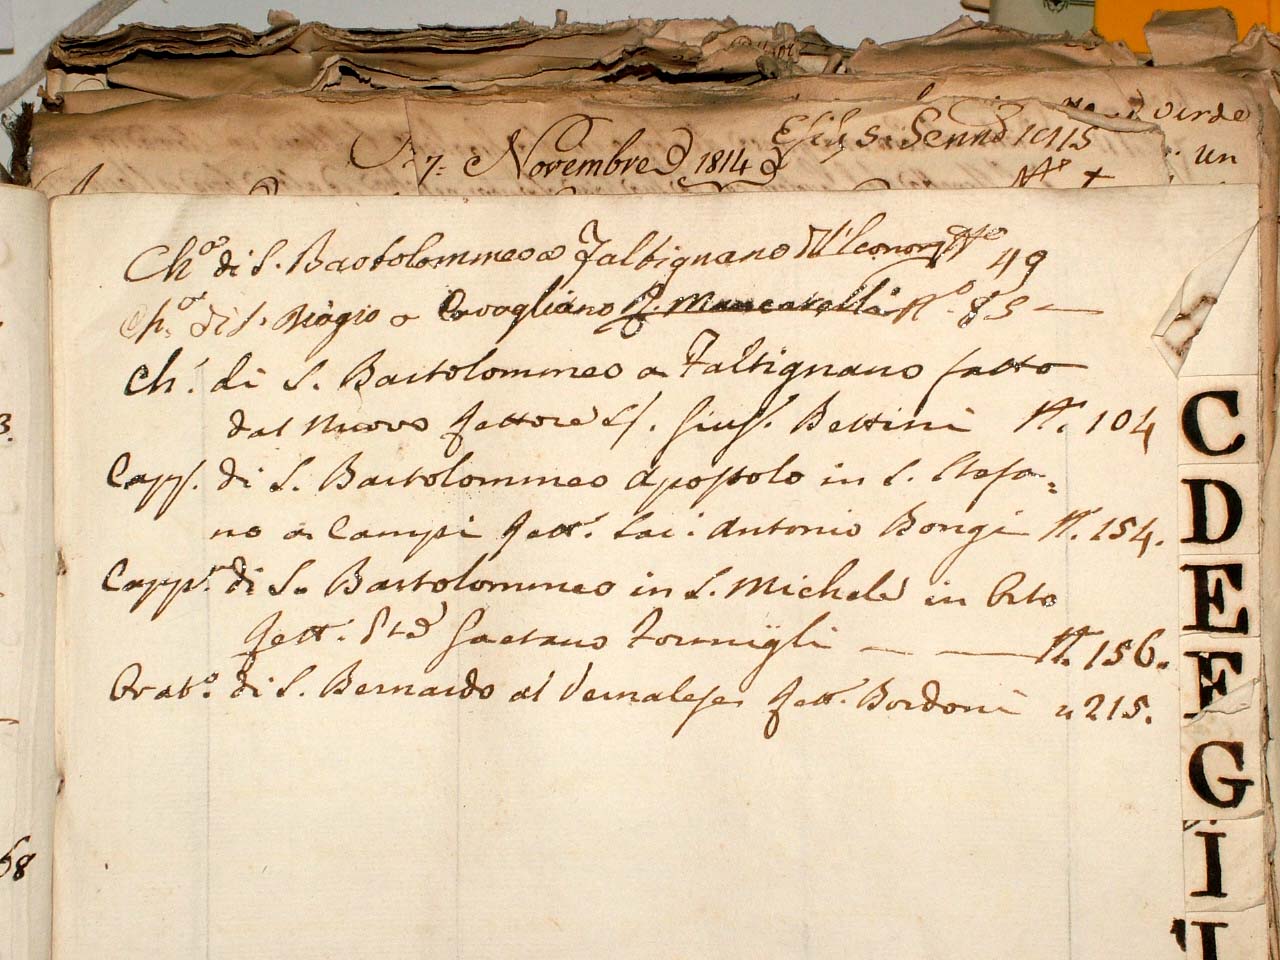 verde
Esib. 5. Genn. 1815
7: Novembre 1814
un
N° +
Ch.ª di S. Bartolommeo a Faltignano N° 49
Ch.ª di S. Biagio a Cavagliano R. Mancarelli N.° 83 —
Ch.ª di S. Bartolommeo a Faltignano fatto
dal Nuovo Rettore S. Gius. Bettini N. 104
Capp. di S. Bartolommeo Apostolo in S. Stefa-
no a Campi Rett. Lai: Antonio Bongi N. 154.
Capp. di S. Bartolommeo in S. Michele in Orto
Rett. Gaetano Formigli — — N. 156.
Orat.° di S. Bernardo al Vernalese Rett. Bordoni " 215.
3.
68
C
D
E
F
G
I
L